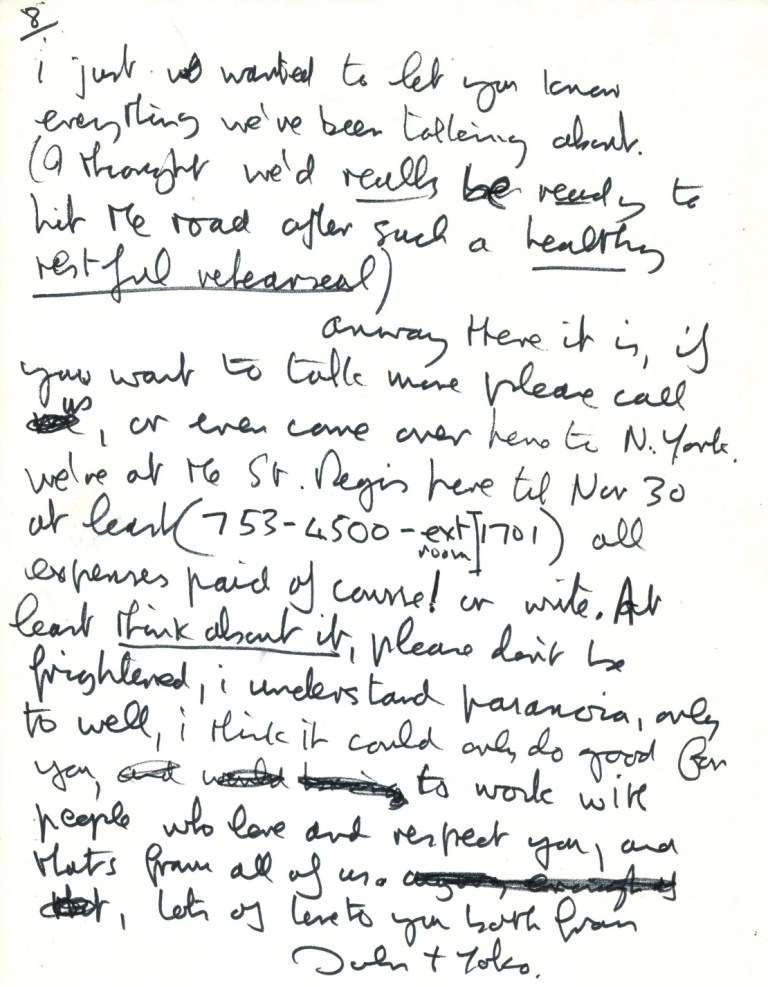 8
i just wanted to let you know
everything we've been talking about.
(I thought we'd really be ready to
hit the road after such a healthy
restful rehearseal)
anway Here it is, if
you want to talk more please call
us, or even come over here to N. York.
we're at the St. Regis here til Nov 30
at least (753-4500-ext 1701) all
room
expenses paid of course! or write. At
least think about it, please don't be
frightened, i understand paranoia, only
to well, i think it could only do good for
you, to work with
people who love and respect you, and
thats from all of us.
lots of love to you both from
John + Yoko.